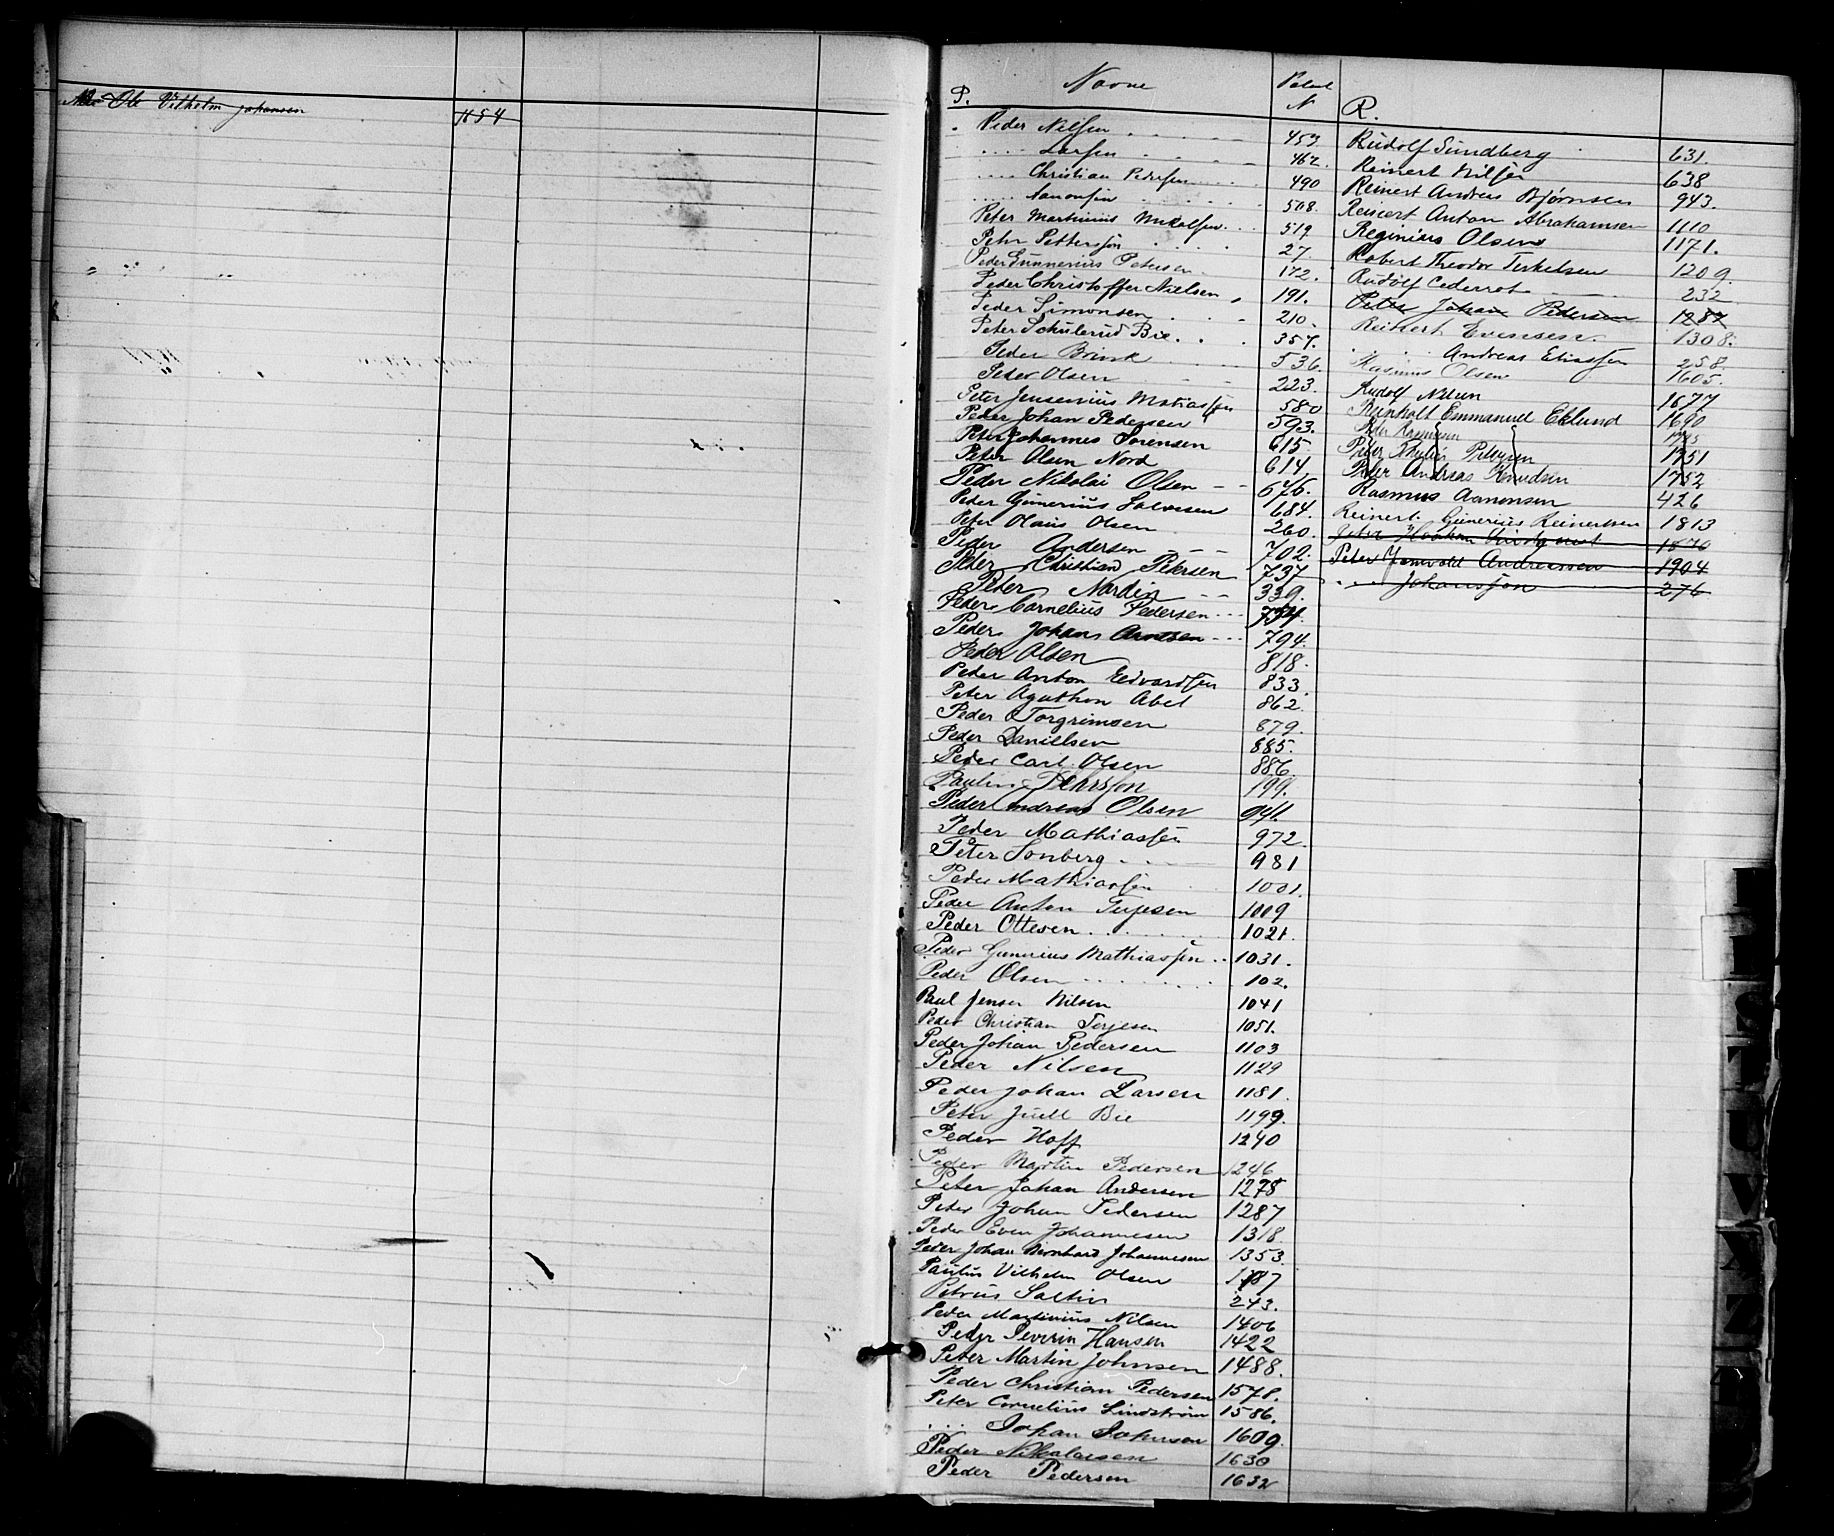 Ole Vilhelm Johansen 1154
P. Navne N R.
Peder Nilsen 453.
.... Larsen 462.
.... Christian Pedersen 490
.... Aanonsen 508.
Peter Martinius Mikalsen 519.
Petter Pettersson 27.
Peder Gunnerius Petersen 172.
Peder Christoffer Nielsen 191.
Peder Simonsen 210.
Peter Schulerud Bie 357.
Peder Brink 536.
Peder Olsen 223.
Peter Jensenius Mathiassen 580
Peder Johan Pedersen 593.
Peter Johannes Sørensen 615
Peter Olsen Nord 614.
Peder Nikolai Olsen 675.
Peder Gunerius Salvesen 684.
Peter Olaus Olsen 260.
Peder Andersen 702.
Peder Christian Petersen 737
Peter Nordin 339.
Peder Cornelius Pedersen
Peder Johans Arntsen 794.
Peder Olsen 818.
Peder Anton Edvardsen 833.
Peter Agathon Abel 862.
Peder Torgrimsen 879.
Peder Danielsen 885.
Peder Carl Olsen 886.
Paulin Pehrsson 199.
Peder Andreas Olsen 941.
Peder Mathiassen 972.
Peter Sonberg 981
Peder Mathiassen 1001.
Peder Anton Terjesen 1009
Peder Ottesen 1021.
Peder Gunerius Mathiassen 1031.
Peder Olsen 102.
Paul Jenser Nilsen 1041
Peder Christian Terjesen 1051.
Peder Johan Pedersen 1103
Peder Nilsen 1129
Peder Johan Larsen 1181.
Peter Juell Bie 1199.
Peder Hoff 1240
Peder Martin Pedersen 1246
Peter Johan Andersen 1278
Peder Johan Pedersen 1287
Peder Even Johannesen 1318.
Peder Johan Bernhard Johannesen 1353.
Paulus Vilhelm Olsen
Petrus Saltin 243.
Peder Martinius Nilsen 1406
Peder Severin Hansen 1422
Peter Martin Johnsen 1488.
Peder Christian Pedersen 1578.
Peter Cornelius Lindstrøm 1586.
.... Johan Johnson 1609.
Peder Nikolaisen 1630
Peder Pedersen 1632
Rudolf Sundberg 631.
Reinert Nilsen 638
Reinert Andreas Bjørnsen 943.
Reinert Anton Abrahamsen 1110
Reginius Olsen 1171.
Robert Theodor Terkelsen 1209.
Rudolf Cederrot 232
Peter Johan Pedersen 1287
Reinert Evensen 1308.
.... Andreas Eliassen 258.
Rasmus Olsen 1605.
Rudolf Nilsen 1677
Reinholt Emmanuel Eklund 1690
Peder Rasmussen
Peter Petersen 1751
Peder Andreas Knudsen 1752
Rasmus Aanonsen 426
Reinert Gunerius Reinertsen 1813
Peter Haakon 1870
Peter Andreassen 1904
.... Johansson 276
S
T
U
V
X
Z